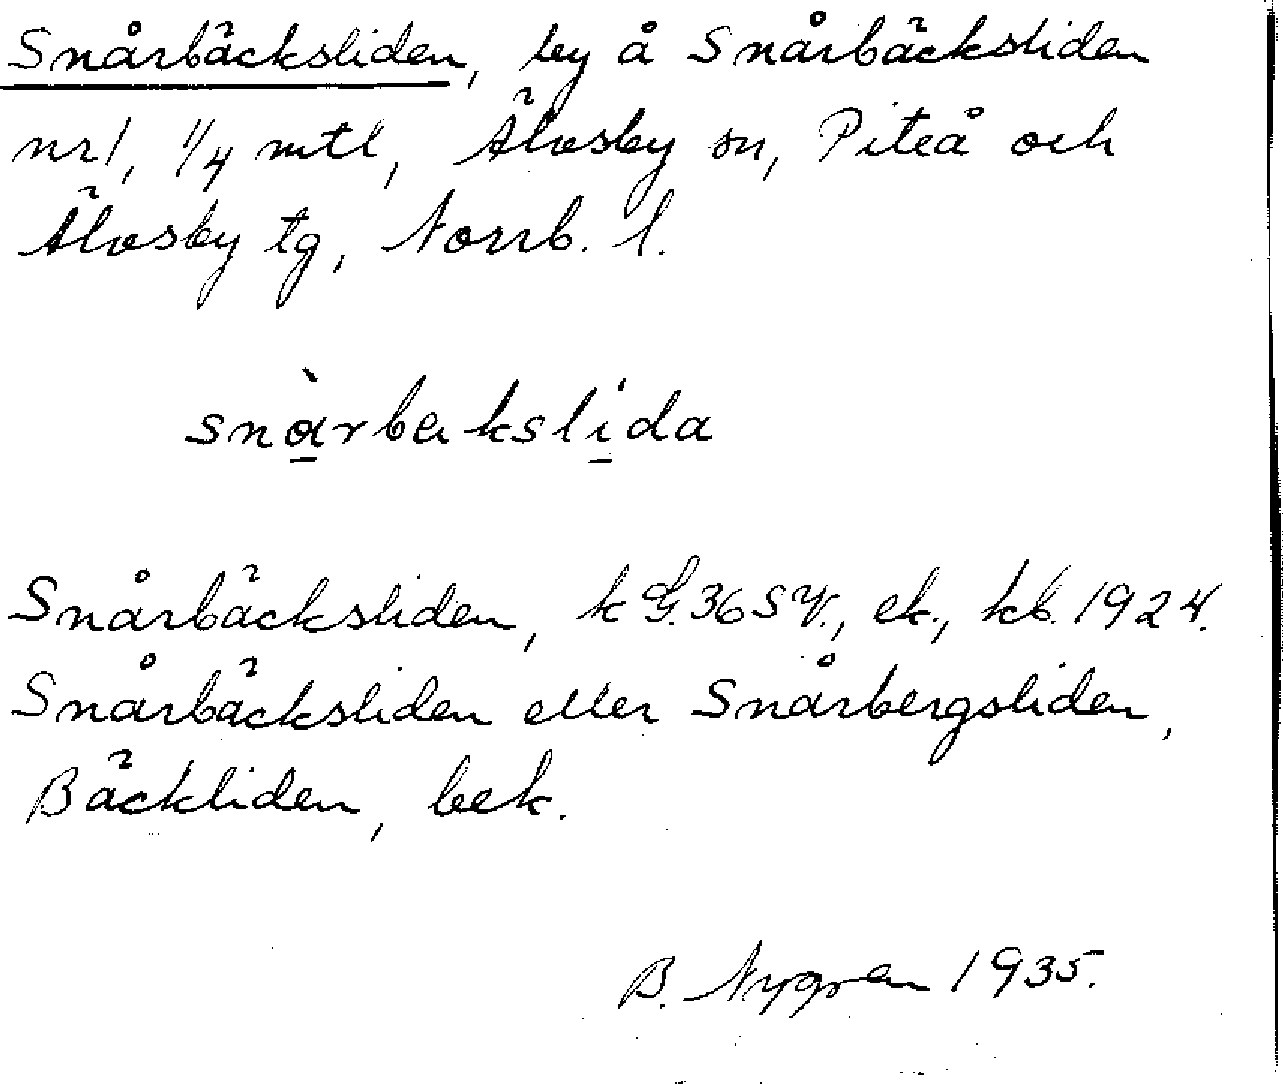 Snårbäcksliden, by å Snårbäcksliden
nr 1, 1/4 mtl, Älvsby sn, Piteå och
Älvsby tg, Norrb. l.
snàrbakslida
Snårbäcksliden, k G. 36 SV., ek., kb. 1924.
Snårbäcksliden eller Snårbergsliden,
Bäckliden, bek.
B. Nygren 1935.